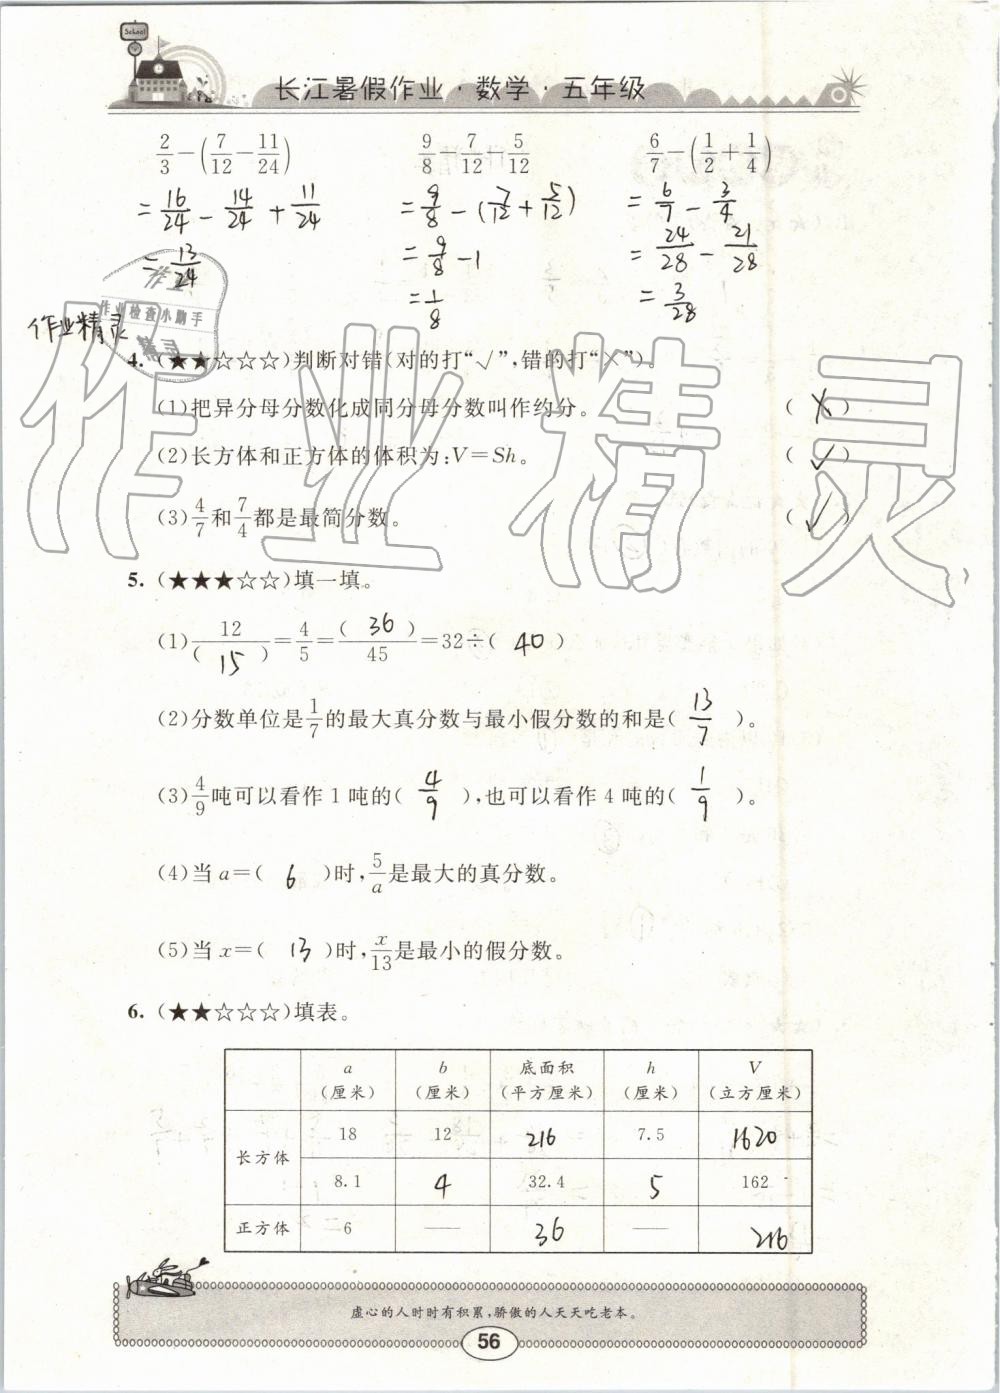 School
长江暑假作业·数学·五年级
2/3-(7/12-11/24)    9/8-7/12-5/12    6/7-(1/2+1/4)
=16/24-14/24+11/24    =9/8-(7/12+5/12)    =6/7-3/4
=13/24    =9/8-1    =24/28-21/28
=1/8    =3/28
作业
作业检查小助手
精灵
作业精灵
作业精灵
4.(★★☆☆☆)判断对错(对的打“√”,错的打“×”)。
(1)把异分母分数化成同分母分数叫作约分。 (×)
(2)长方体和正方体的体积为:V=Sh。 (√)
(3)4/7和7/4都是最简分数。 (√)
5.(★★★☆☆)填一填。
(1)12/(15)=4/5=(36)/45=32÷(40)
(2)分数单位是1/7的最大真分数与最小假分数的和是(13/7)。
(3)4/9吨可以看作1吨的(4/9),也可以看作4吨的(1/9)。
(4)当a=(6)时,5/a是最大的真分数。
(5)当x=(13)时,x/13是最小的假分数。
6.(★★☆☆☆)填表。
a(厘米) b(厘米) 底面积(平方厘米) h(厘米) V(立方厘米)
长方体 18 12 216 7.5 1620
8.1 4 32.4 5 162
正方体 6 —— 36 —— 216
虚心的人时时有积累,骄傲的人天天吃老本。
56